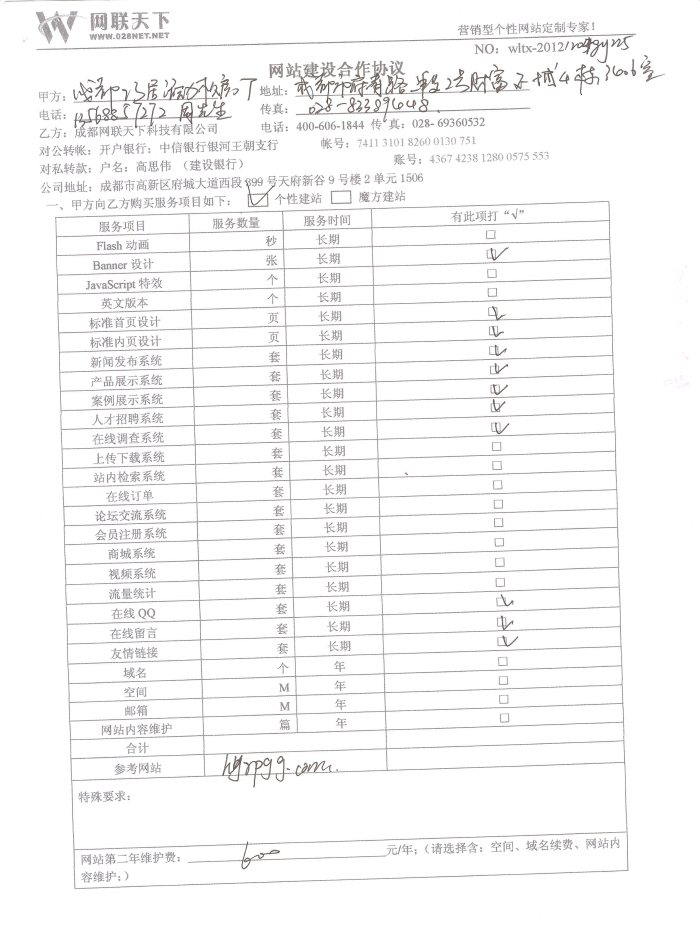 网联天下
WWW.028NET.NET
营销型个性网站定制专家!
NO: wltx-2012/
网站建设合作协议
甲方: 地址:
电话: 13568857272 周先生 传真: 028-83289448
乙方: 成都网联天下科技有限公司 电话: 400-606-1844 传 真: 028- 69360532
对公转帐: 开户银行: 中信银行银河王朝支行 帐号: 7411 3101 8260 0130 751
对私转款: 户名: 高思伟 (建设银行) 账号: 4367 4238 1280 0575 553
公司地址: 成都市高新区府城大道西段 399 号天府新谷 9 号楼 2 单元 1506
一、甲方向乙方购买服务项目如下: ☑ 个性建站 □ 魔方建站
服务项目 服务数量 服务时间 有此项打“√”
Flash 动画 秒 长期 □
Banner 设计 张 长期 ☑
JavaScript 特效 个 长期 □
英文版本 个 长期 □
标准首页设计 页 长期 ☑
标准内页设计 页 长期 ☑
新闻发布系统 套 长期 ☑
产品展示系统 套 长期 ☑
案例展示系统 套 长期 ☑
人才招聘系统 套 长期 ☑
在线调查系统 套 长期 ☑
上传下载系统 套 长期 □
站内检索系统 套 长期 □
在线订单 套 长期 □
论坛交流系统 套 长期 □
会员注册系统 套 长期 □
商城系统 套 长期 □
视频系统 套 长期 □
流量统计 套 长期 □
在线 QQ 套 长期 ☑
在线留言 套 长期 ☑
友情链接 套 长期 ☑
域名 个 年 □
空间 M 年 □
邮箱 M 年 □
网站内容维护 篇 年 □
合计
参考网站
特殊要求:
网站第二年维护费: 600 元/年; (请选择含: 空间、域名续费、网站内
容维护; )